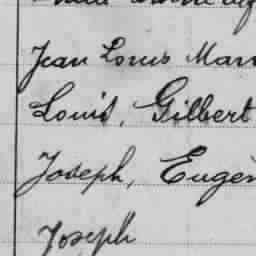 Jean Louis Mar
Louis, Gilbert
Joseph, Eugèn
Joseph